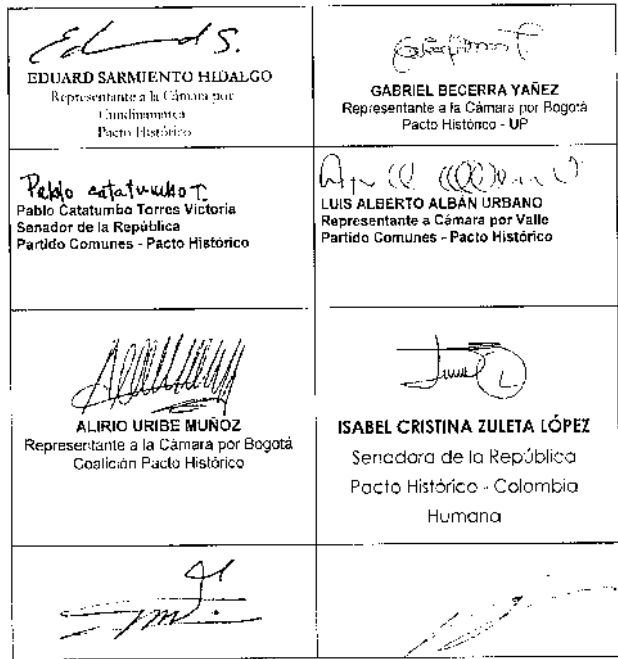 Eduard S.
EDUARD SARMIENTO HIDALGO
Representante a la Cámara por
Cundinamarca
Pacto Histórico
GABRIEL BECERRA YAÑEZ
Representante a la Cámara por Bogotá
Pacto Histórico - UP
Pablo catatumbo T.
Pablo Catatumbo Torres Victoria
Senador de la República
Partido Comunes - Pacto Histórico
LUIS ALBERTO ALBÁN URBANO
Representante a Cámara por Valle
Partido Comunes - Pacto Histórico
ALIRIO URIBE MUÑOZ
Representante a la Cámara por Bogotá
Coalición Pacto Histórico
ISABEL CRISTINA ZULETA LÓPEZ
Senadora de la República
Pacto Histórico - Colombia
Humana